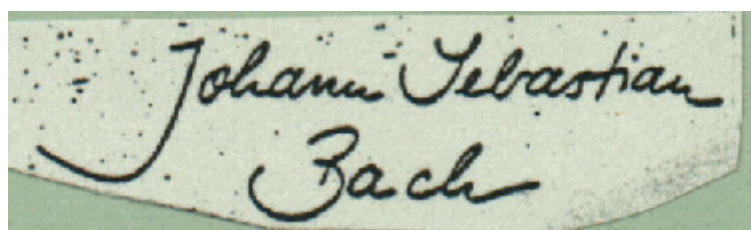 Johann Sebastian
Bach